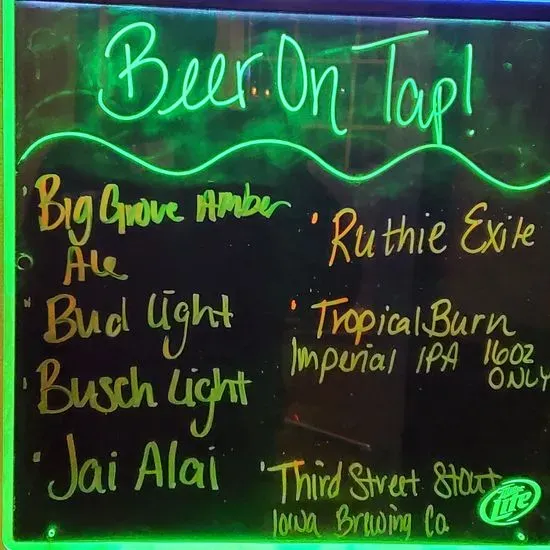 Beer On Tap!
Big Grove Amber
Ale
Bud Light
Busch Light
Jai Alai
Ruthie Exile
Tropical Burn
Imperial IPA 16oz
ONLY
Third Street Stout
Iowa Brewing Co
Miller Lite